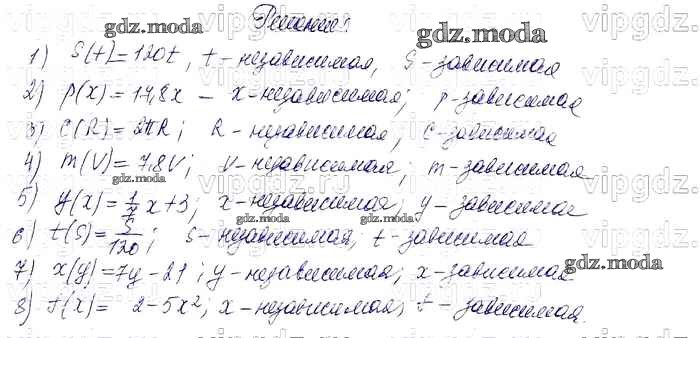 Решение:
1) S(t)=120t, t-независимая, S-зависимая
2) p(x)=14,8x - x-независимая; p-зависимая
3) C(R)=2πR; R-независимая, C-зависимая
4) m(V)=7,8V; V-независимая; m-зависимая
5) y(x)=1/7 x+3; x-независимая; y-зависимая
6) t(S)=S/120; S-независимая, t-зависимая
7) x(y)=7y-21; y-независимая; x-зависимая
8) f(x)= 2-5x²; x-независимая, f-зависимая.
gdz.moda
gdz.moda
gdz.moda
gdz.moda
gdz.moda
gdz.moda
gdz.moda
vipgdz.com